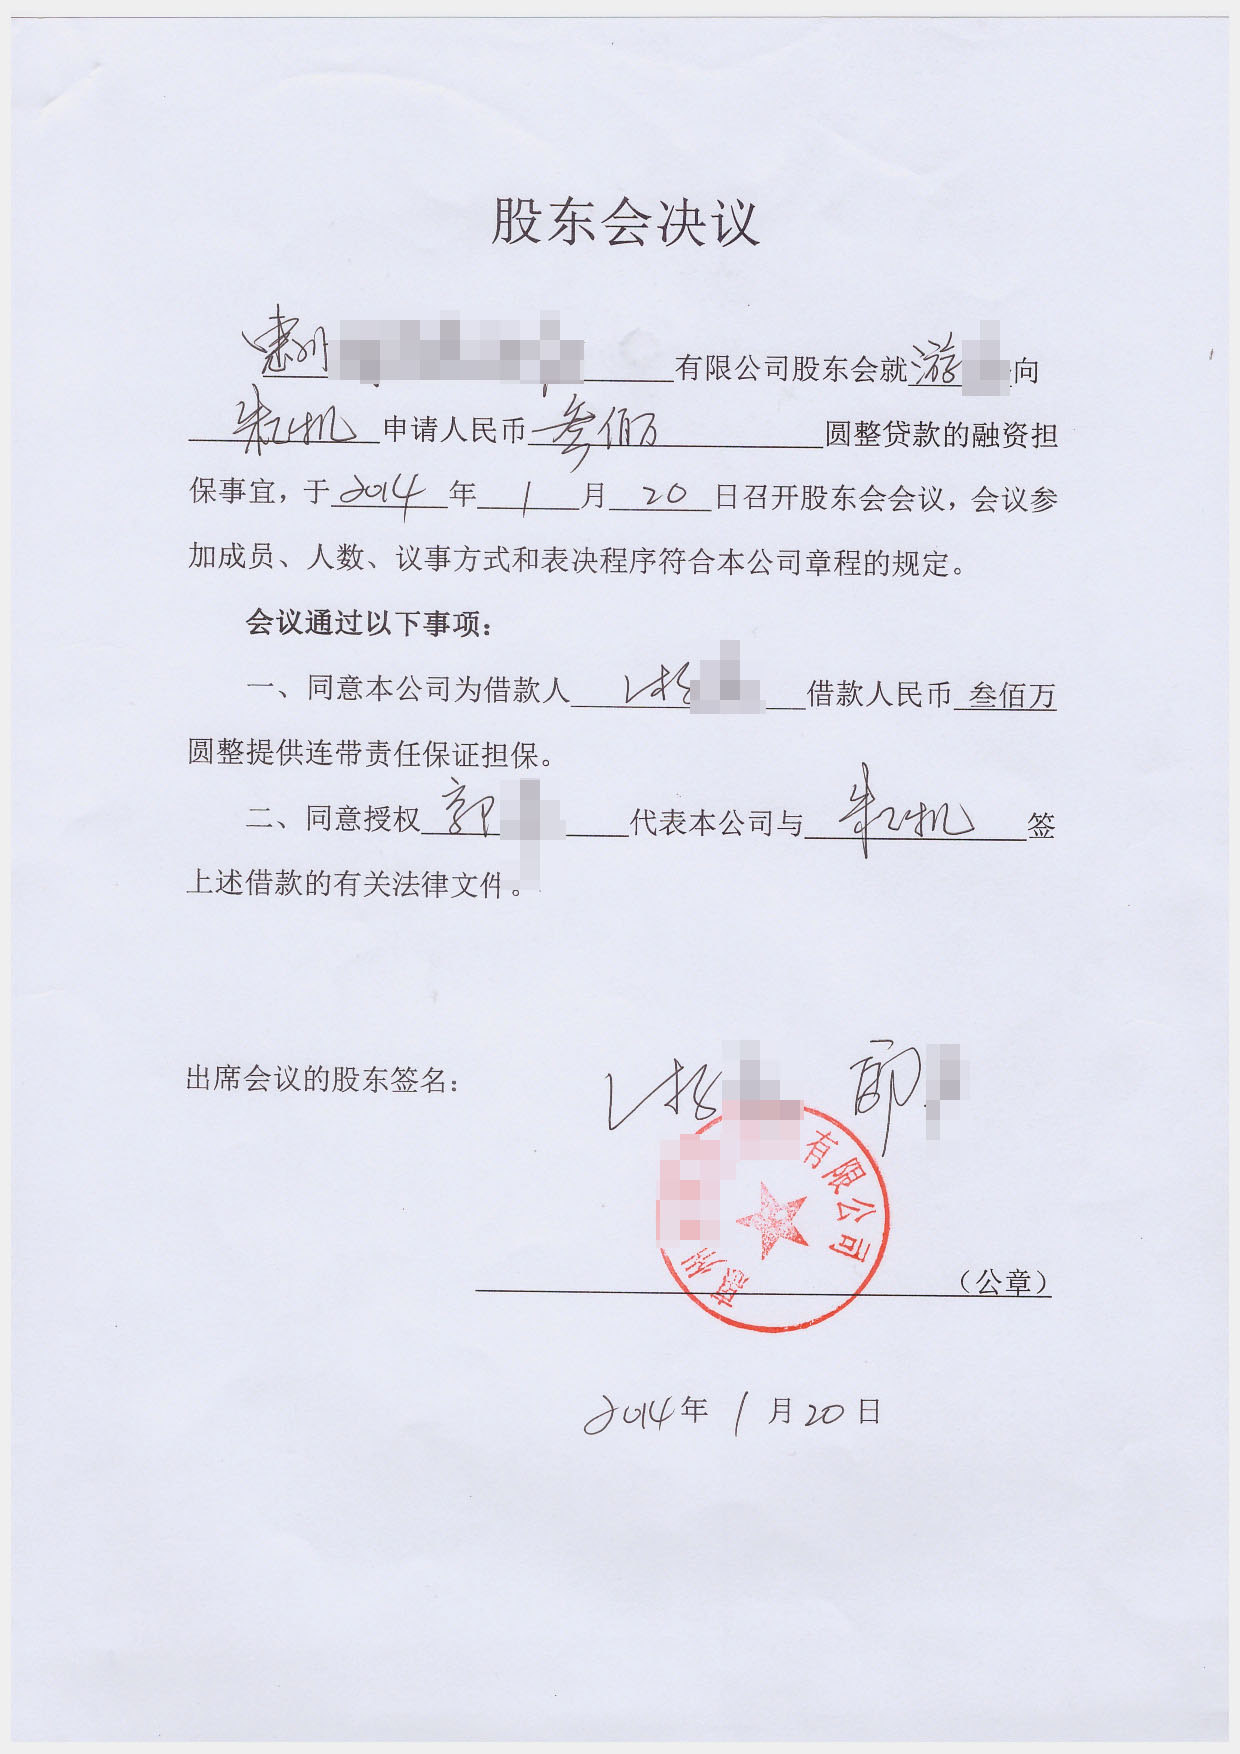 股东会决议
惠州 有限公司股东会就游 向
申请人民币叁佰万圆整贷款的融资担
保事宜，于2014年1月20日召开股东会会议，会议参
加成员、人数、议事方式和表决程序符合本公司章程的规定。
会议通过以下事项：
一、同意本公司为借款人 游 借款人民币 叁佰万
圆整提供连带责任保证担保。
二、同意授权 郭 代表本公司与 签
上述借款的有关法律文件。
出席会议的股东签名： 游 郭
惠州 有限公司
（公章）
2014年1月20日